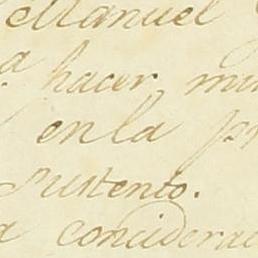 Manuel
a hacer mi
en la pr
sustento.
a conciderac